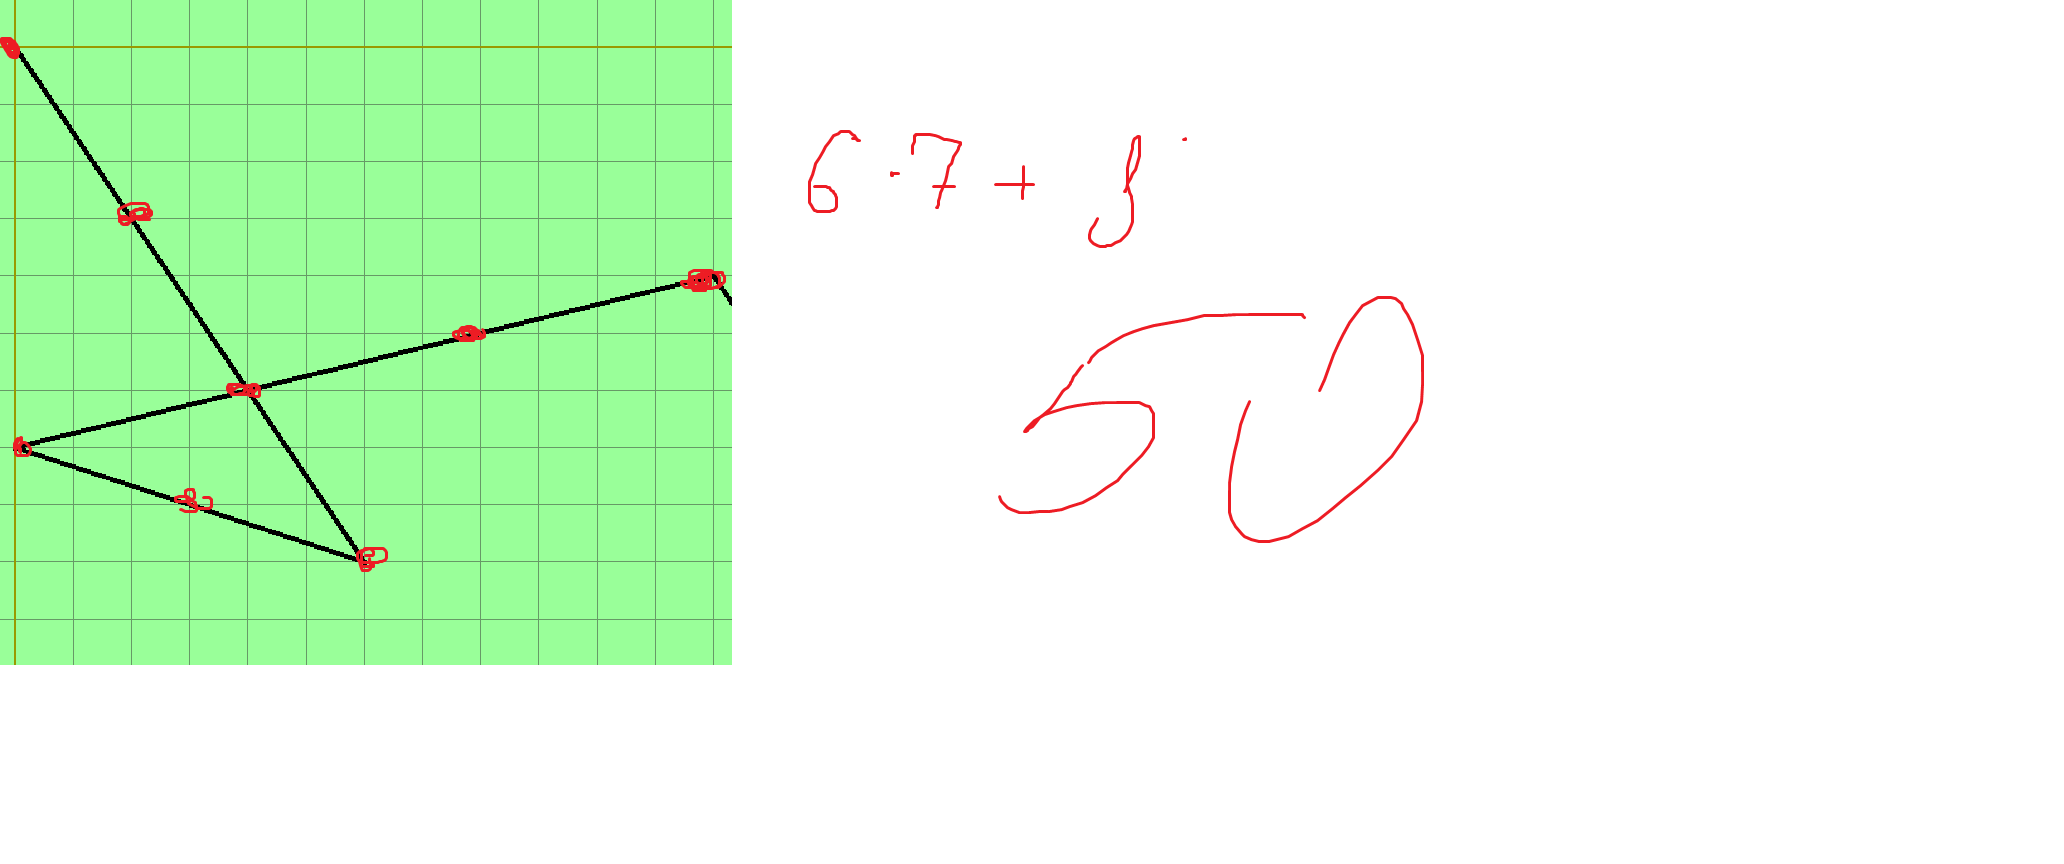 6·7+8
50